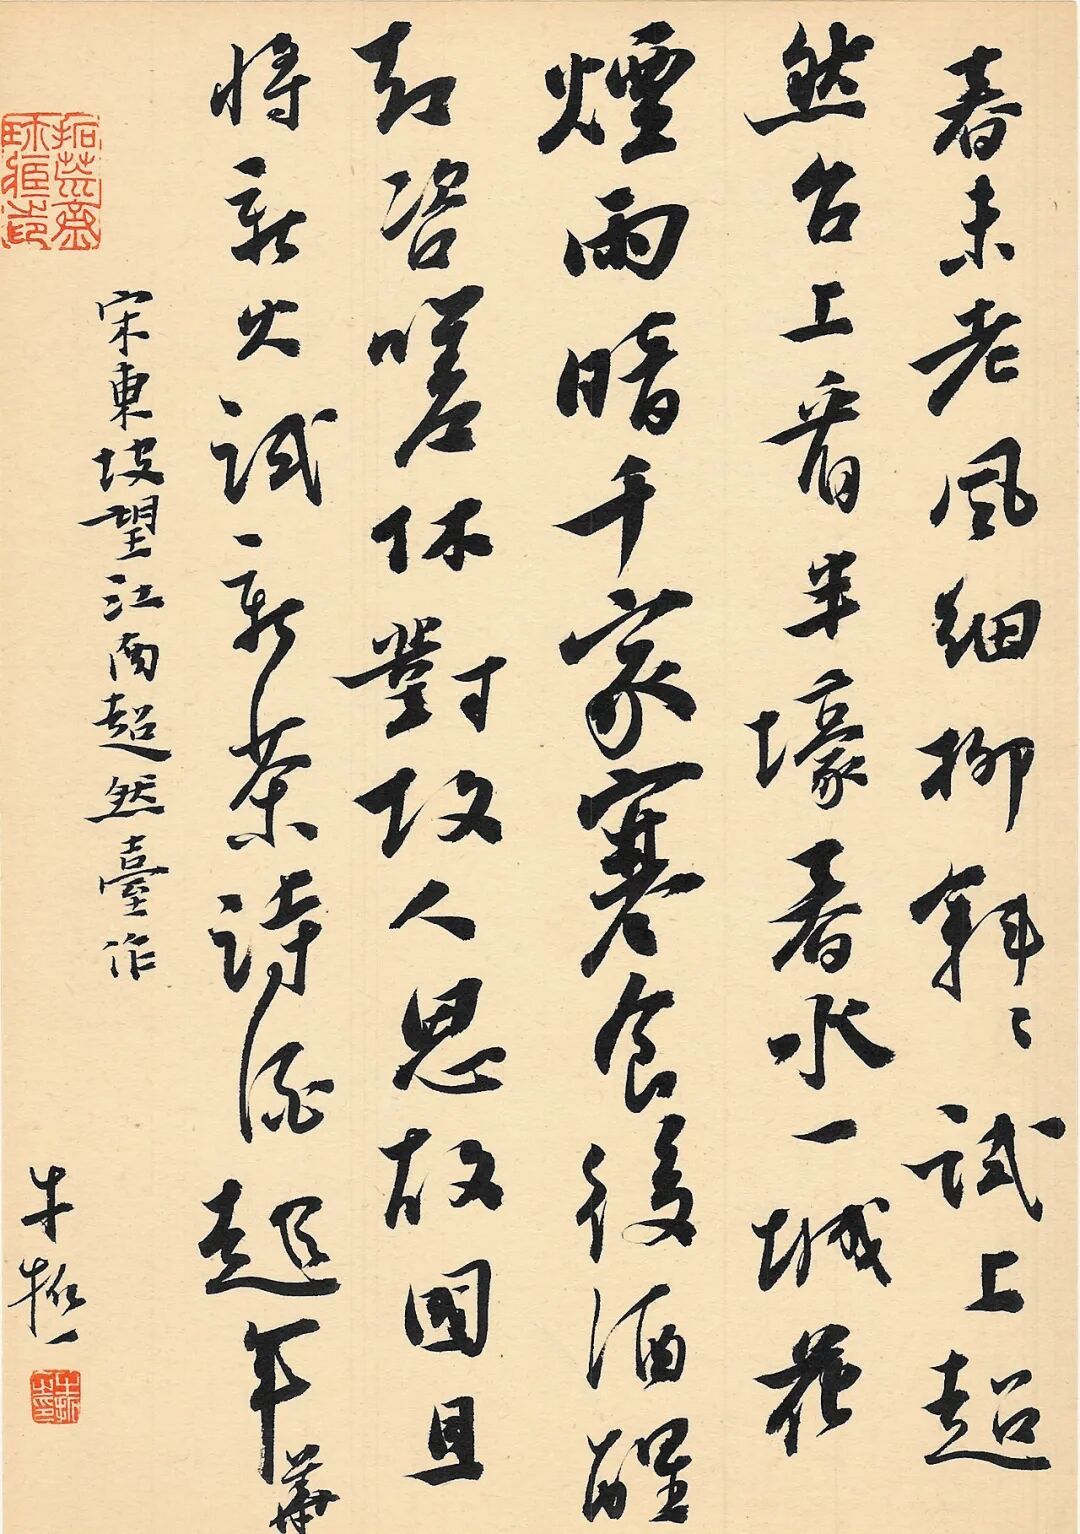 春未老風細柳斜〻試上超
然台上看半壕春水一城花
煙雨暗千家寒食後酒醒
却咨嗟休對故人思故國且
将新火試新茶詩酒趁年華
宋東坡望江南超然臺作